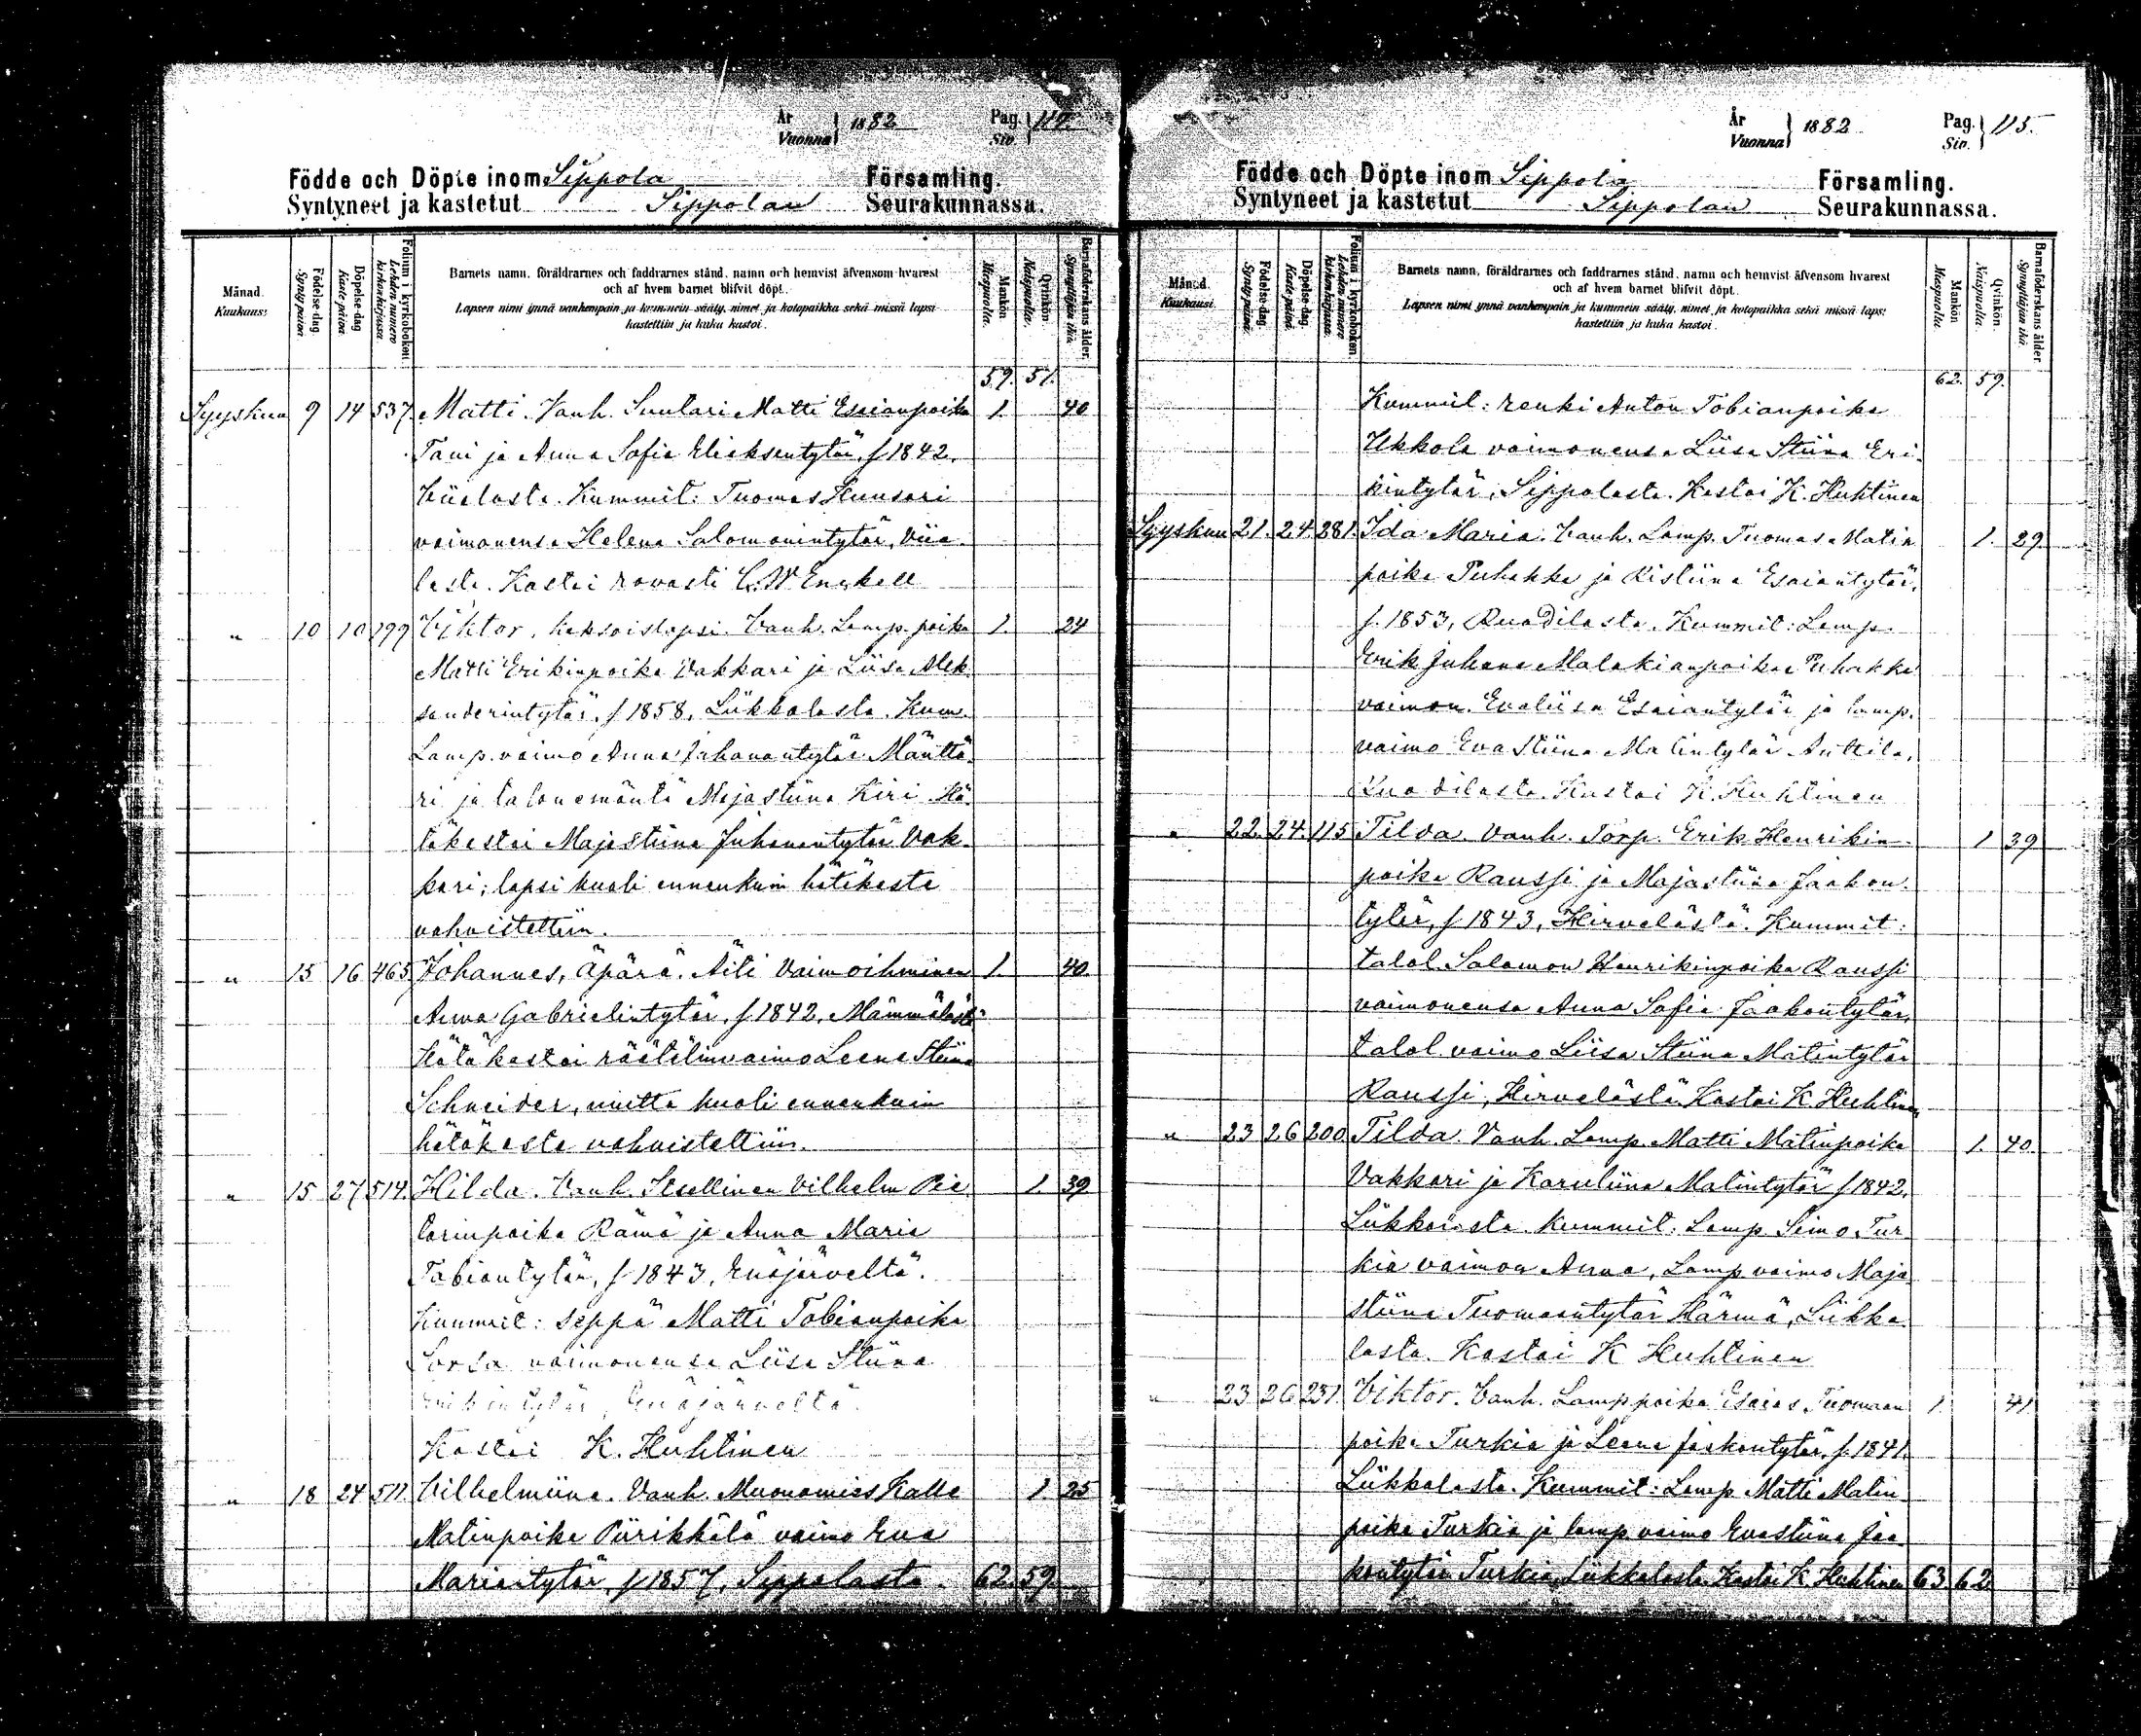 År Vuonna } 1882 Pag. Siv. } 114.
Födde och Döpte inom Sippola Församling.
Syntyneet ja kastetut Sippolan Seurakunnassa.
Månad. Kuukausi.
Födelse-dag. Synty päivä.
Döpelse-dag. Kaste päivä.
Folium i kyrkoboken. Lehden numero kirkonkirjassa.
Barnets namn, föräldrarnes och faddrarnes stånd, namn och hemvist äfvensom hvarest
och af hvem barnet blifvit döpt.
Lapsen nimi ynnä vanhempain ja kummein sääty, nimet ja kotopaikka sekä missä lapsi
kastettiin ja kuka kastoi.
Mankön. Miespuolia.
Qvinkön. Naispuolia.
Barnaföderskans ålder. Synnyttäjän ikä.
59. 57.
Syyskuu 9 14 537. Matti. Vanh. Suutari Matti Esaianpoika 1. 40
Tani ja Anna Sofia Eliaksentytär, f 1842.
Viialasta. Kummit: Tuomas Huusari
vaimonensa Helena Salomonintytär, Viia-
lasta. Kastoi rovasti C. W Enckell
" 10 10 199 Viktor, kaksoislapsi. Vanh. Lamp. poika 1. 24
Matti Erikinpoika Vakkari ja Liisa Alek-
santerintytär, f 1858, Liikkalasta. Kum.
Lamp. vaimo Anna Juhanantytär Mänttä-
ri ja talonemäntä Majastiina Kiri. Hä-
täkastoi Majastiina Juhanantytär Vak-
kari; lapsi kuoli ennenkuin hätäkaste
vahvistettiin.
" 15 16 465. Johannes, äpärä. Äiti Vaimoihminen 1. 40.
Anna Gabrielintytär, f 1842, Mämmälästä
Hätäkastoi räätälinvaimo Leena Stiina
Schneider, mutta kuoli ennenkuin
hätäkaste vahvistettiin.
" 15 27 514. Hilda. Vanh. Itsellinen Vilhelm Pie-
tarinpoika Rämä ja Anna Maria 1. 39
Tobiantytär, f 1843, Enäjärveltä.
Kummit: Seppä Matti Tobianpoika
Sorsa vaimonensa Liisa Stiina
Erikintytär, Enäjärveltä.
Kastoi K. Huhtinen
" 18 24 511. Vilhelmiina. Vanh. Muonamies Kalle 1 25
Matinpoika Piirikkälä vaimo Eva
Mariantytär, f 1857, Sippolasta. 62. 59.
År Vuonna } 1882 Pag. Siv. } 115.
Födde och Döpte inom Sippola Församling.
Syntyneet ja kastetut Sippolan Seurakunnassa.
Månad. Kuukausi.
Födelse-dag. Synty päivä.
Döpelse-dag. Kaste päivä.
Folium i kyrkoboken. Lehden numero kirkonkirjassa.
Barnets namn, föräldrarnes och faddrarnes stånd, namn och hemvist äfvensom hvarest
och af hvem barnet blifvit döpt.
Lapsen nimi ynnä vanhempain ja kummein sääty, nimet ja kotopaikka sekä missä lapsi
kastettiin ja kuka kastoi.
Mankön. Miespuolia.
Qvinkön. Naispuolia.
Barnaföderskans ålder. Synnyttäjän ikä.
62. 59.
Kummit: renki Anton Tobianpoika
Ukkola vaimonensa Liisa Stiina Eri-
kintytär, Sippolasta. Kastoi K. Huhtinen
Syyskuu 21. 24. 281. Ida Maria. Vanh. Lamp. Tuomas Matin 1. 29
poika Puhakka ja Kistiina Esaiantytär,
f. 1853, Ruotilasta. Kummit: Lamp.
Erik Juhana Malakianpoika Puhakka
vaimon. Evaliisa Esaiantytär ja lamp.
vaimo Eva Stiina Matintytär Anttila,
Ruotilasta. Kastoi K. Huhtinen
" 22. 24. 115 Tilda. Vanh. Torp. Erik Henrikin- 1 39
poika Raussi ja Majastiina Jaakon-
tytär, f 1843, Hirvelästä. Kummit:
talol. Salomon Henrikinpoika Raussi
vaimonensa Anna Sofia Jaakontytär,
talol. vaimo Liisa Stiina Matintytär
Raussi, Hirvelästä. Kastoi K. Huhtinen
" 23 26 200 Tilda. Vanh. Lamp. Matti Matinpoika 1. 40.
Vakkari ja Karuliina Matintytär f 1842,
Liikkalasta. Kummit: Lamp. Simo Tur-
kia vaimon Anna, Lamp. vaimo Maja
stiina Tuomaantytär Härmä, Liikka-
lasta. Kastoi K Huhtinen
" 23 26 231. Viktor. Vanh. Lamp. poika Esaias Tuomaan 1. 41
poika Turkia ja Leena Jaakontytär, f. 1841.
Liikkalasta. Kummit: Lamp Matti Matin
poika Turkia ja lamp. vaimo Evastiina Jaa-
kontytär Turkia, Liikkalasta. Kastoi K. Huhtinen 63. 62.